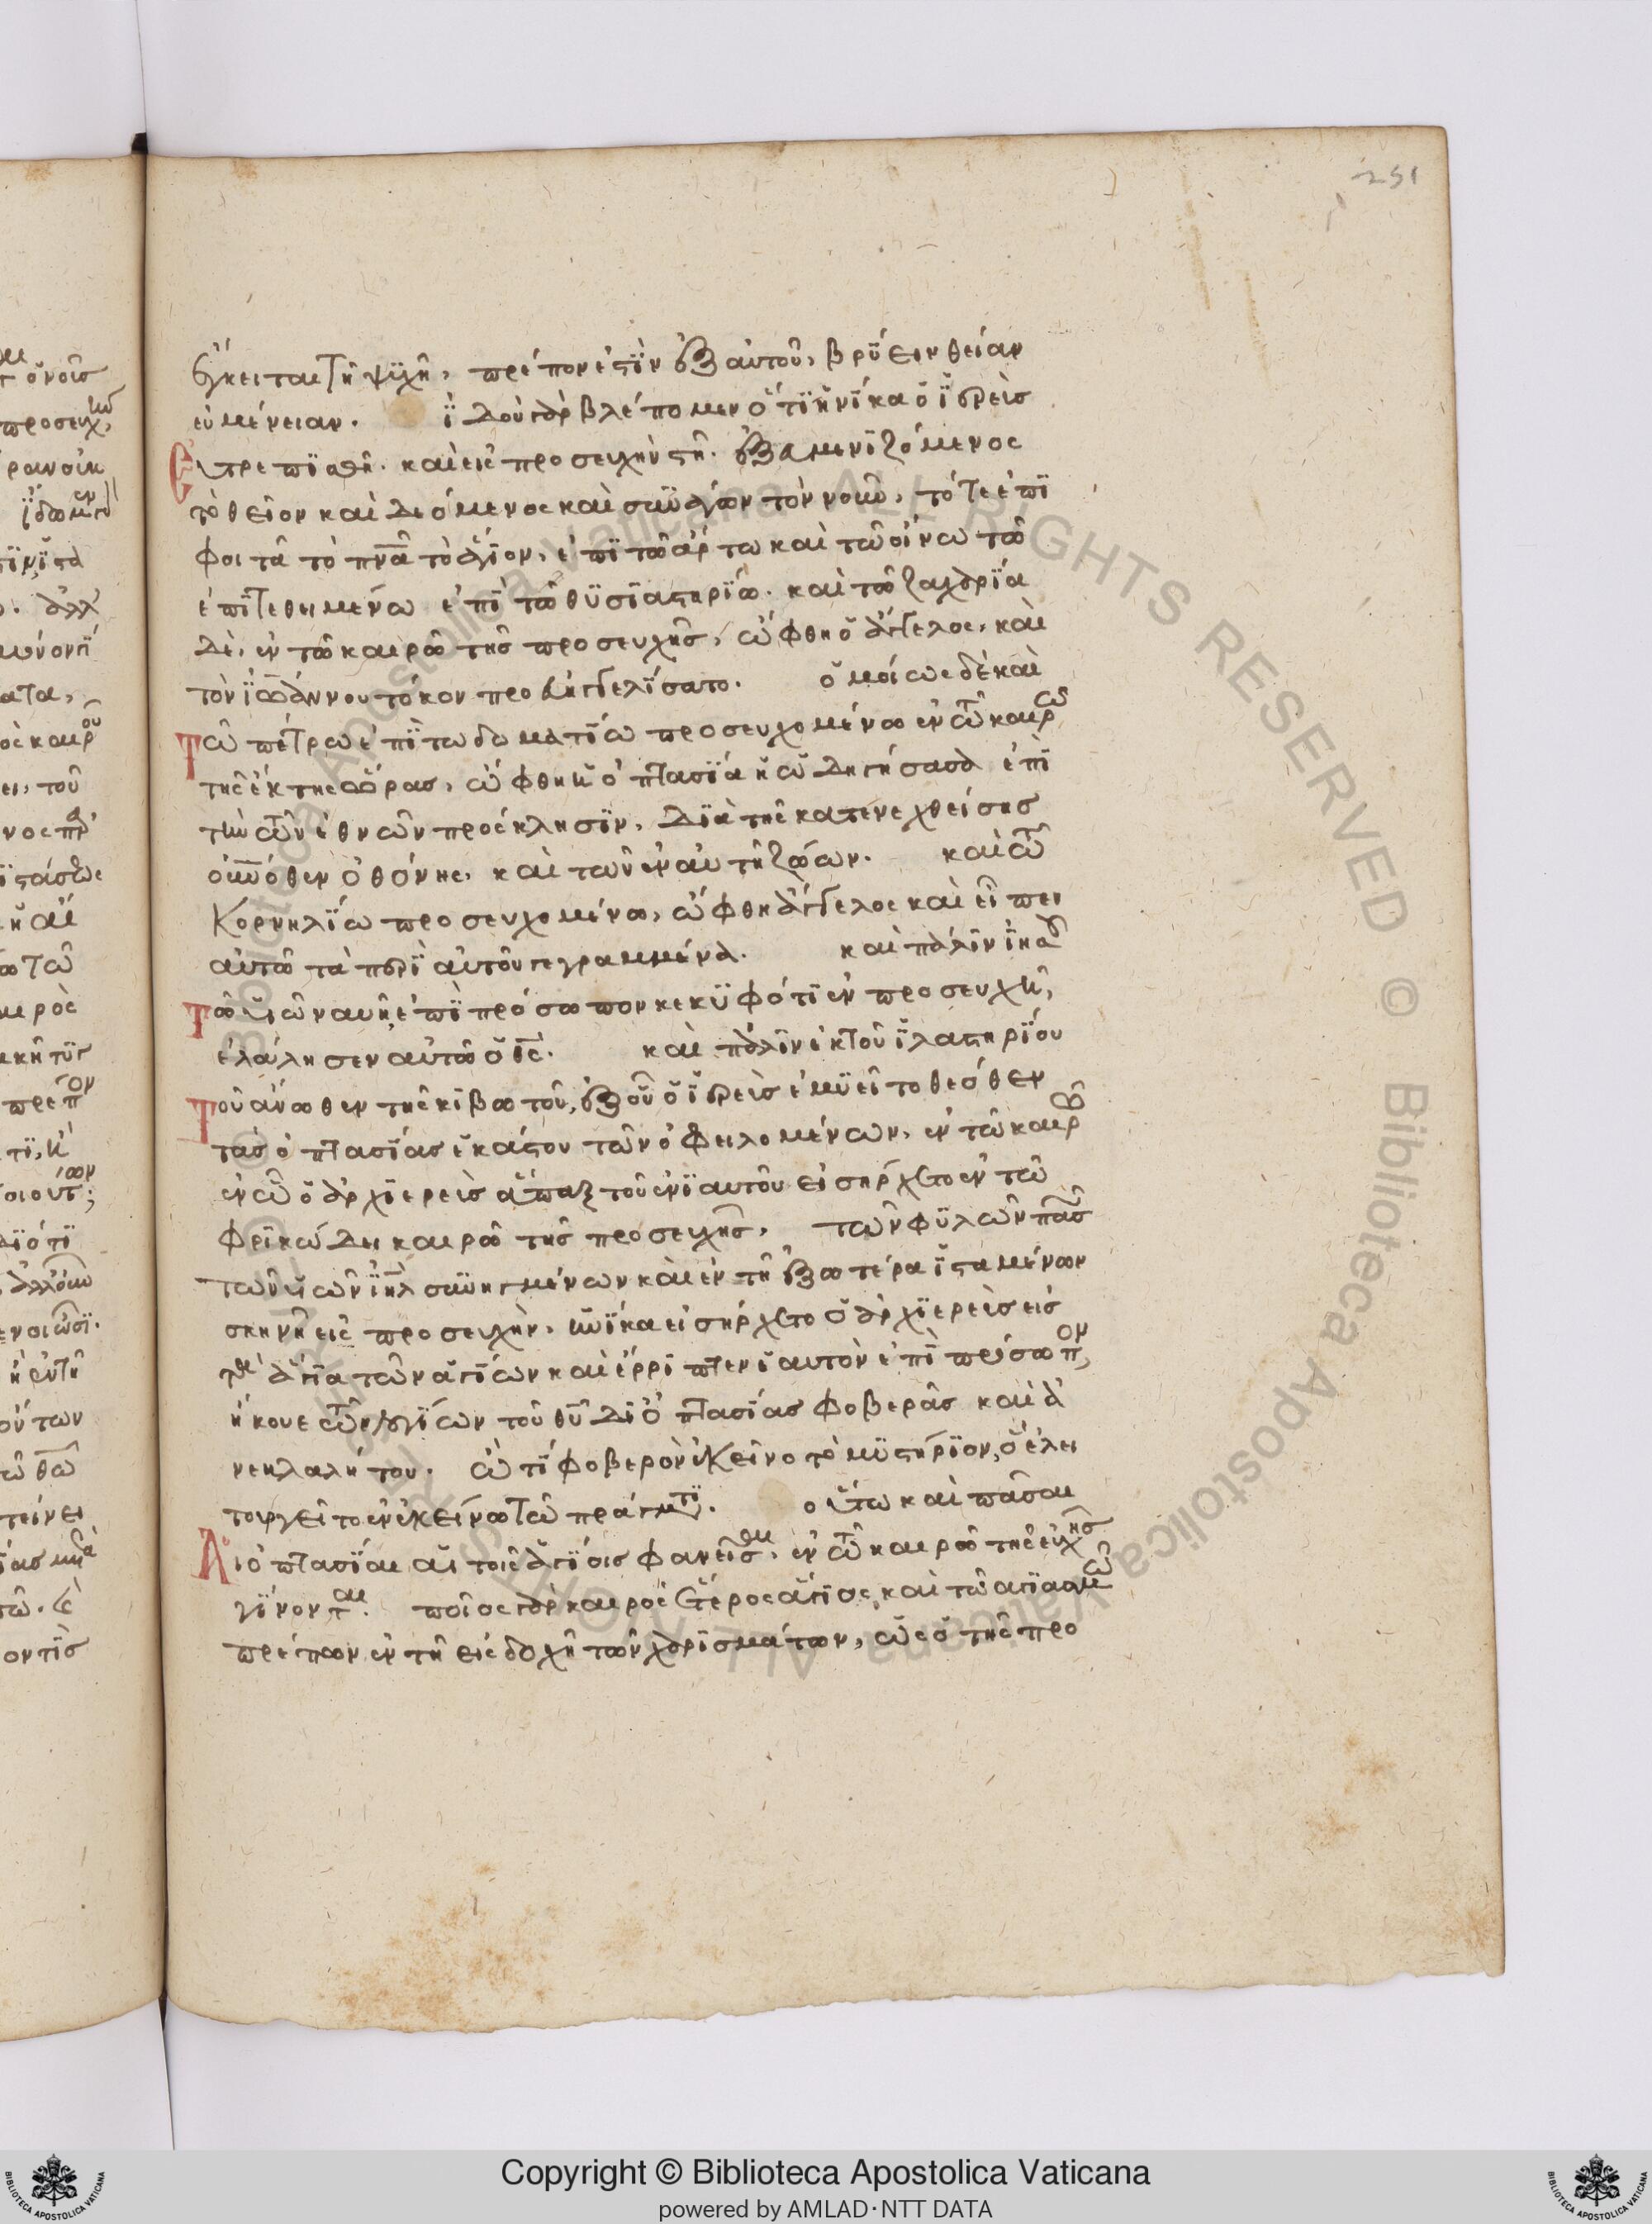 251
ἔγκειται τῆ ψυχῆ, πρέπον ἐστὶν ἐξ αὐτοῦ, βρύειν θείαν
εὐμένειαν. ἰδοὺ γὰρ βλέπομεν ὅτι ἡνίκα ὁ ἱερεὺς
Εὐτρεπισθῆ. καὶ εἰς προσευχὴν στῆ. ἐξευμενιζόμενος
τὸ θεῖον καὶ δεόμενος καὶ συνάγων τὸν νοῦν, τότε ἐπι
φοιτᾶ τὸ πνᾶ τὸ ἅγιον, ἐπὶ τῶ ἄρτω καὶ τῶ οἴνω τῶ
ἐπιτεθειμένω ἐπὶ τῶ θυσιαστηρίω. καὶ τῶ ζαχαρία
δὲ, ἐν τῶ καιρῶ τῆς προσευχῆς, ὤφθη ὁ ἄγγελος, καὶ
τὸν ἰωάννου τόκον προευηγγελίσατο. ὁμοίως δὲ καὶ
Τῶ πέτρω ἐπὶ τω δωματίω προσευχομένω ἐν τῶ καιρῶ
τῆς ἕκτης ὥρας, ὤφθη ἡ ὀπτασία ἡ ὁδηγήσασα ἐπὶ
τὴν τῶν ἐθνῶν πρόσκλησιν, διὰ τῆς κατενεχθείσης
οὐνόθεν ὀθόνης, καὶ τῶν ἐν αὐτῆ ζώων. καὶ τῶ
Κορνηλίω προσευχομένω, ὤφθη ἄγγελος καὶ εἶπεν
αὐτῶ τὰ περὶ αὐτοῦ γεγραμμένα. καὶ πάλιν ἡνίκα
Τῶ υἱῶ ναυῆ ἐπὶ πρόσωπον κεκυφότι ἐν προσευχῆ,
ἐλάλησεν αὐτῶ ὁ θς. καὶ πάλιν ἐκ τοῦ ἱλαστηρίου
Τοῦ ἄνωθεν τῆς κιβωτοῦ, ἐξ οὗ ὁ ἱερεὺς ἐμυεῖτο θεόθεν
τὰς ὀπτασίας ἑκάστου τῶν ὀφειλομένων, ἐν τῶ καιρῶ
ἐν ὧ ὁ ἀρχιερεὺς ἅπαξ τοῦ ἐνιαυτοῦ εἰσήρχετο ἐν τῶ
φρικώδει καιρῶ τῆς προσευχῆς, τῶν φυλῶν πασῶν
τῶν υἱῶν ἰηλ συνηγμένων καὶ ἐν τῆ ἐξωτέρα ἱσταμένων
σκηνῆ εἰς προσευχὴν, ἡνίκα εἰσήρχετο ὁ ἀρχιερεὺς εἰς
τὰ ἅγια τῶν ἁγίων καὶ ἔρριπτεν ἑαυτὸν ἐπὶ πρόσωπον,
ἤκουε τῶν λογίων τοῦ θυ δι' ὀπτασίας φοβερᾶς καὶ ἀ
νεκλαλήτου. ὢ τί φοβερὸν ἐκεῖνο τὸ μυστήριον, ὃ ἐλει
τουργεῖτο ἐν ἐκείνω τῶ πράγματι. οὕτω καὶ πᾶσαι
Αἱ ὀπτασίαι αἱ τοῖς ἁγίοις φανεῖσαι, ἐν τῶ καιρῶ τῆς εὐχῆς
γίνονται. ποῖος γὰρ καιρὸς ἕτερος ἅγιος, καὶ τῶ ἁγιασμῶ
πρέπων ἐν τῆ εἰσδοχῆ τῶν χαρισμάτων, ὡς ὁ τῆς προ
Copyright © Biblioteca Apostolica Vaticana
powered by AMLAD·NTT DATA